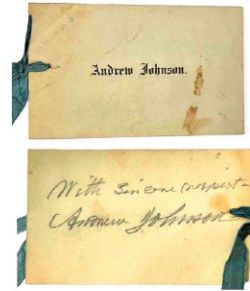 Andrew Johnson.
With sincere respect
Andrew Johnson